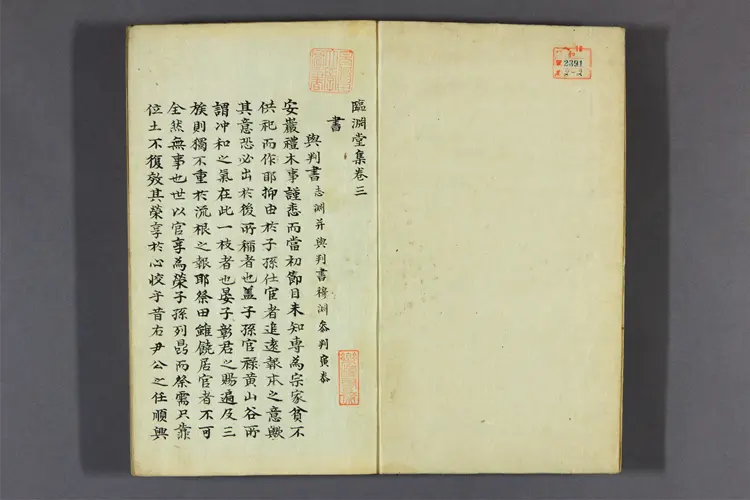 臨淵堂集卷三
書
與判書志淵幷與判書穆淵叅判寅泰
安巖禮木事謹悉而當初節目未知專為宗家貧不
供祀而作耶抑由於子孫仕宦者追遠報本之意歟
其意恐必出於後所稱者也盖子孫官祿黃山谷所
謂冲和之氣在此一枝者也晏子彰君之賜遍及三
族則獨不重於流根之報耶祭田雖饒居官者不可
全然無事也世以官享為榮子孫列昌而祭需只靠
位土不復效其榮享於心恔乎昔右尹公之任順興
2391
2-2